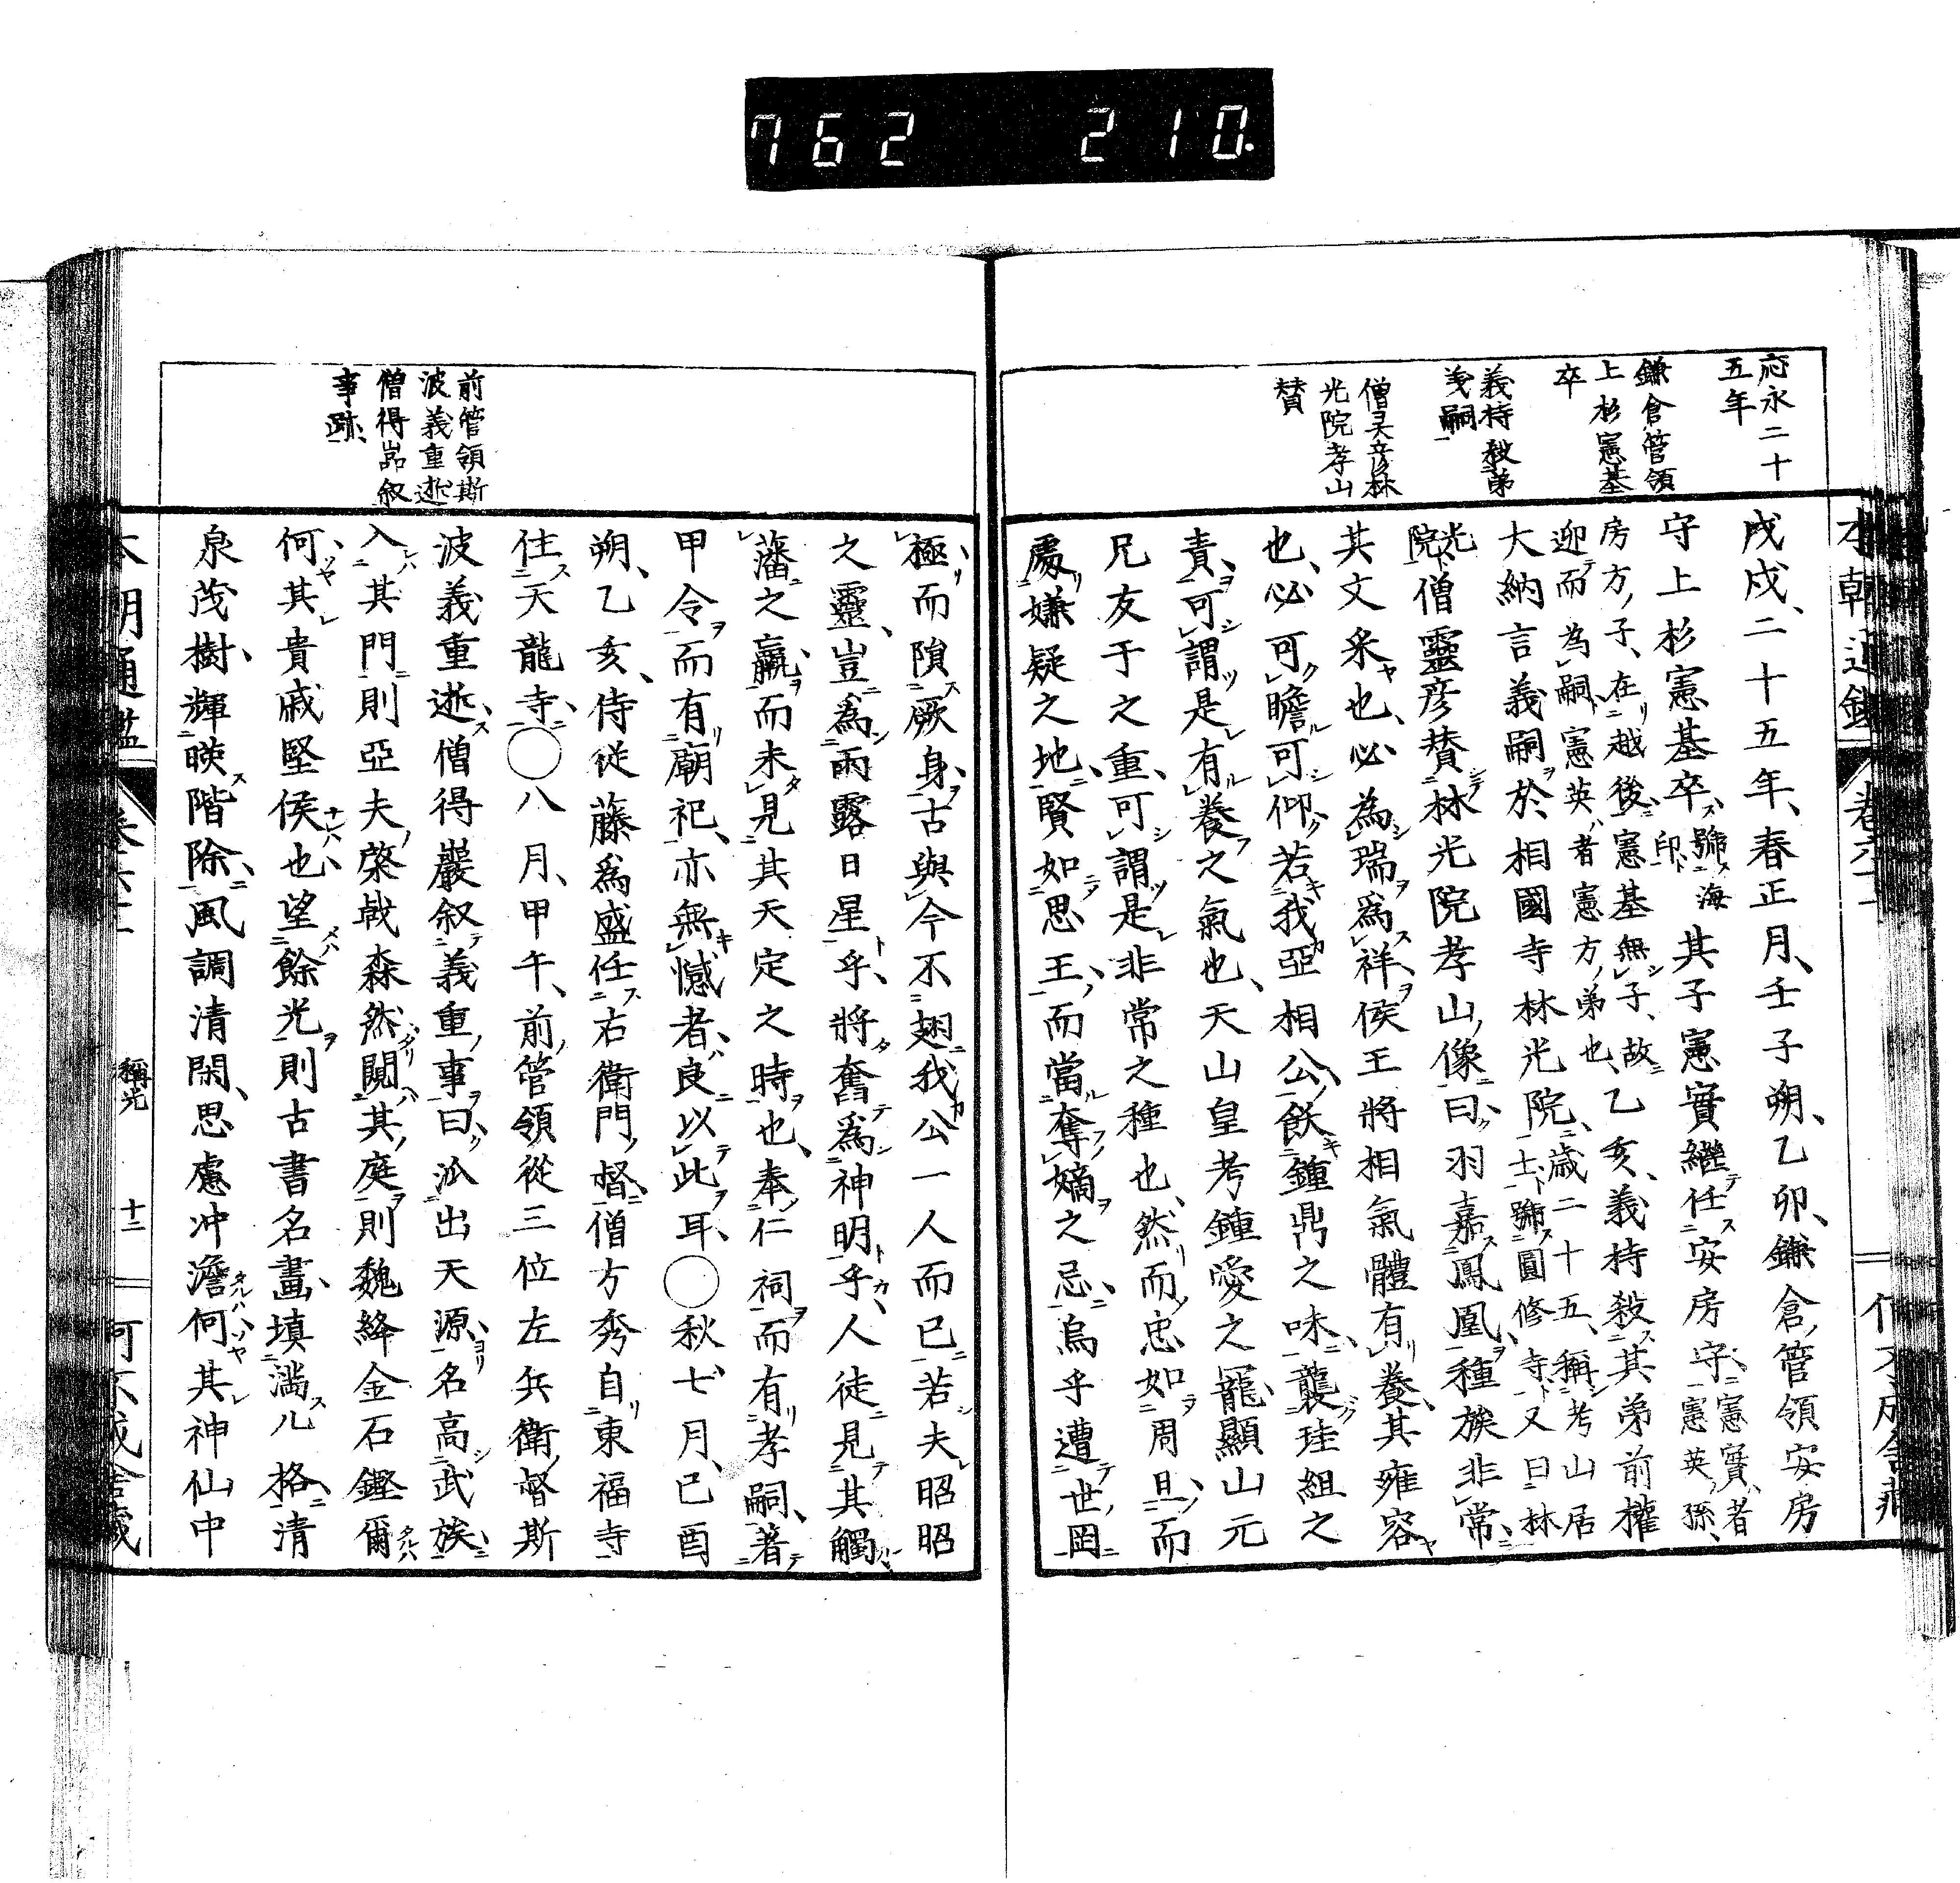 762 210.
應永二十
五年
鎌倉管領
上杉憲基
卒
義持殺弟
義嗣
僧灵彦林
光院孝山
賛
戊戌、二十五年、春正月、壬子朔、乙卯、鎌倉管領安房
守上杉憲基卒、號海印、其子憲實繼任安房守、憲實者憲英孫、
房方子、在越後、憲基無子、故
迎而為嗣、憲英者憲方弟也、乙亥、義持殺其弟前權
大納言義嗣於相國寺林光院、歳二十五、稱考山居
士、號圓修寺、又曰林
光院、僧靈彦賛林光院孝山像曰、羽嘉鳳凰、種族非常、
其文采也、必為瑞為祥、侯王將相氣體有養、其雍容
也、必可瞻可仰、若我亞相公、飫鍾鼎之味、襲珪組之
責、可謂是有養之氣也、天山皇考鍾愛之寵、顯山元
兄友于之重、可謂是非常之種也、然而忠如周旦、而
處嫌疑之地、賢如思王、而當奪嫡之忌、烏乎遭世罔
極而隕厥身、古與今不翅我公一人而已、若夫昭昭
之靈、豈為雨露日星乎、將奮為神明乎、人徒見其觸
藩之羸、而未見其天定之時也、奉仁祠而有孝嗣、著
甲令而有廟祀、亦無憾者、良以此耳、○秋、七月、已酉
朔、乙亥、侍從藤為盛任右衛門督、僧方秀自東福寺
住天龍寺、○八月、甲午、前管領從三位左兵衛督斯
波義重逝、僧得巖叙義重事曰、泒出天源、名高武族、
入其門、則亞夫棨戟森然、閲其庭則魏絳金石鏗爾、
何其貴戚堅侯也、望餘光則古書名畫、填滿几格、清
泉茂樹、輝暎階除、風調清閑、思慮冲澹、何其神仙中
前管領斯
波義重逝
僧得嵓叙
事跡、
稱光 十二